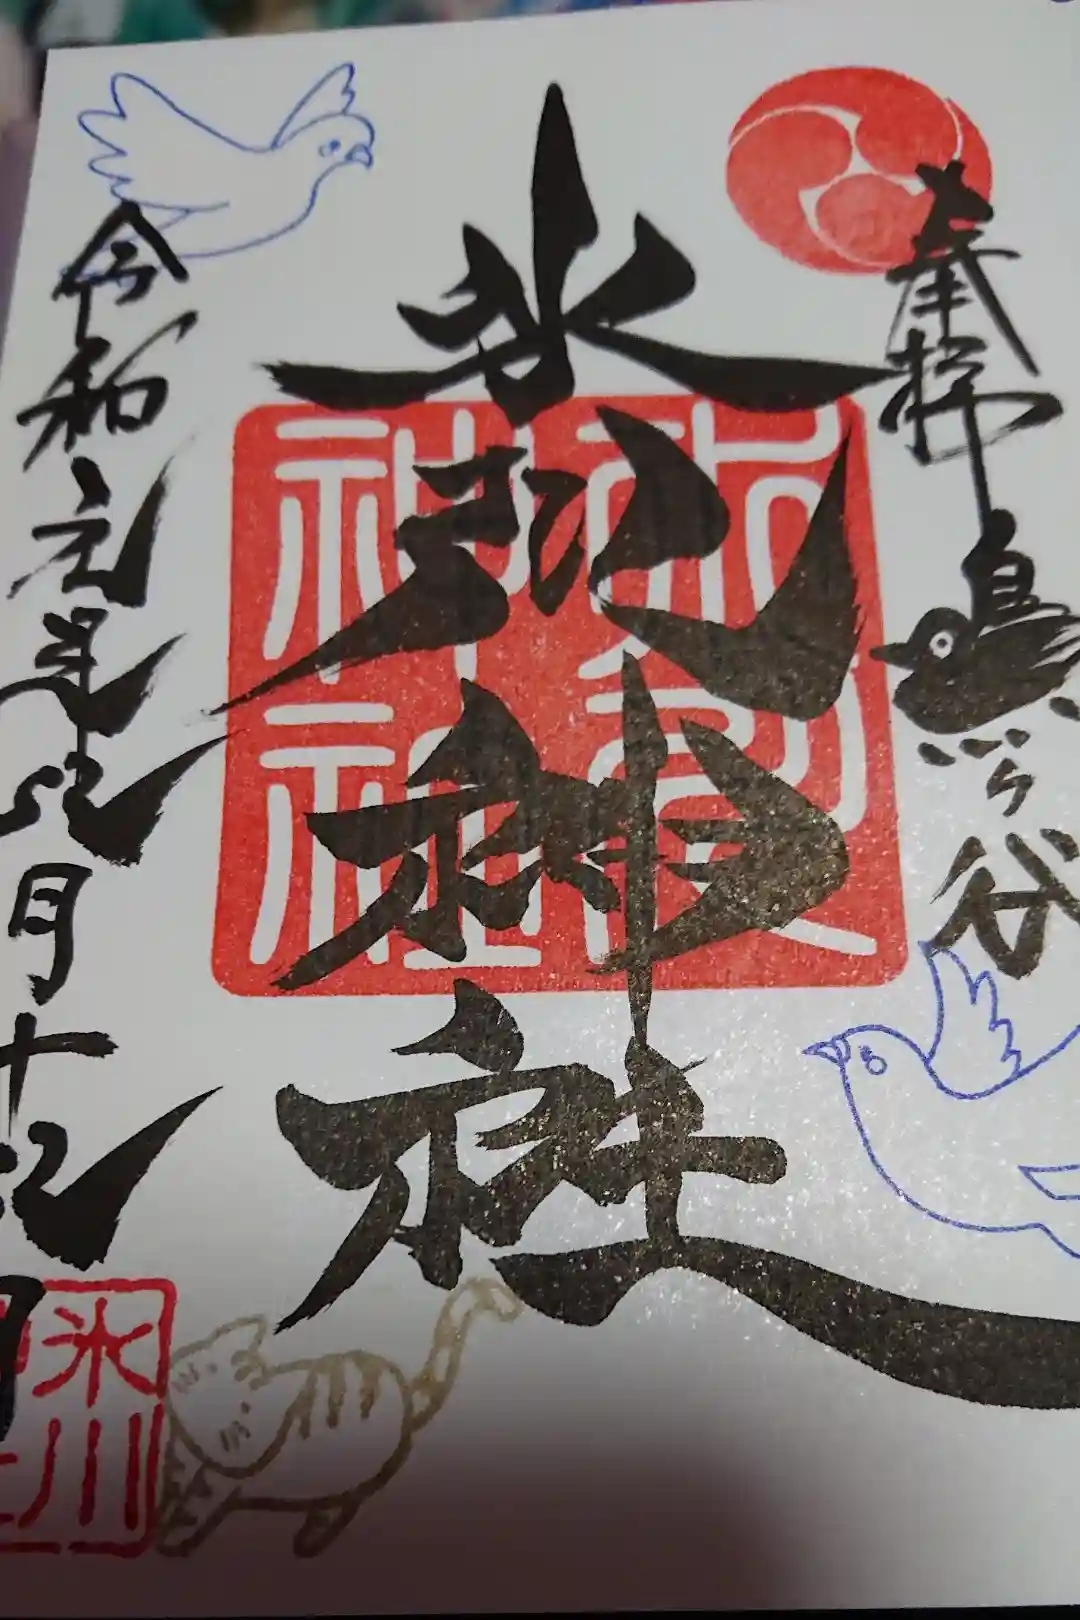 奉拝 鳩ヶ谷
氷川神社
令和元年九月十九日
神社
氷川